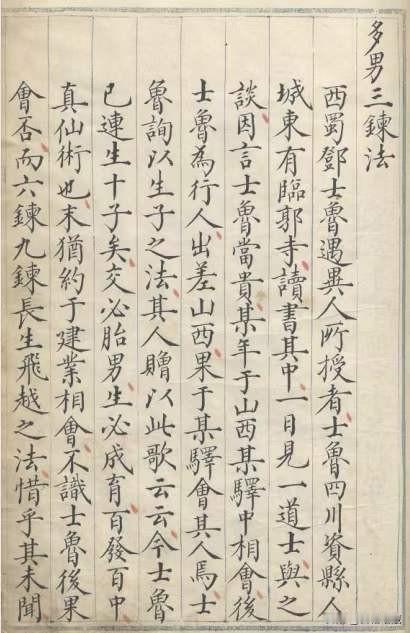 多男三鍊法
西蜀鄧士魯遇異人所授者士魯四川資縣人
城東有臨郭寺讀書其中一日見一道士與之
談因言士魯當貴某年于山西某驛中相會後
士魯為行人出差山西果于某驛會其人焉士
魯詢以生子之法其人贈以此歌云云今士魯
已連生十子矣交必胎男生必成育百發百中
真仙術也末猶約于建業相會不識士魯後果
會否而六鍊九鍊長生飛越之法惜乎其未聞